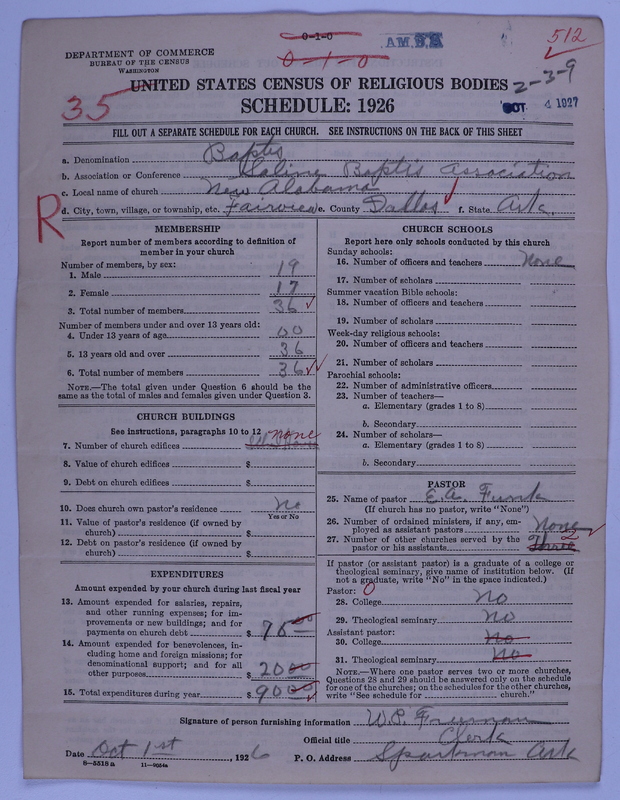 DEPARTMENT OF COMMERCE
BUREAU OF THE CENSUS
WASHINGTON
0-1-0
0-1-0
AM.
512
35
UNITED STATES CENSUS OF RELIGIOUS BODIES
2-3-9
SCHEDULE: 1926
OCT 4 1927
FILL OUT A SEPARATE SCHEDULE FOR EACH CHURCH. SEE INSTRUCTIONS ON THE BACK OF THIS SHEET
a. Denomination Baptis
b. Association or Conference Saline Baptis Association
c. Local name of church New Alabama
R
d. City, town, village, or township, etc. Fairview e. County Dallas f. State Ark.
MEMBERSHIP
Report number of members according to definition of member in your church
Number of members, by sex:
1. Male 19
2. Female 17
3. Total number of members 36
Number of members under and over 13 years old:
4. Under 13 years of age 00
5. 13 years old and over 36
6. Total number of members 36
NOTE.—The total given under Question 6 should be the
same as the total of males and females given under Question 3.
CHURCH BUILDINGS
See instructions, paragraphs 10 to 12
7. Number of church edifices none
8. Value of church edifices $
9. Debt on church edifices $
10. Does church own pastor's residence No
Yes or No
11. Value of pastor's residence (if owned by
church) $
12. Debt on pastor's residence (if owned by
church) $
EXPENDITURES
Amount expended by your church during last fiscal year
13. Amount expended for salaries, repairs,
and other running expenses; for im-
provements or new buildings; and for
payments on church debt $ 70 00
14. Amount expended for benevolences, in-
cluding home and foreign missions; for
denominational support; and for all
other purposes $ 20 00
15. Total expenditures during year $ 90 00
CHURCH SCHOOLS
Report here only schools conducted by this church
Sunday schools:
16. Number of officers and teachers None
17. Number of scholars
Summer vacation Bible schools:
18. Number of officers and teachers
19. Number of scholars
Week-day religious schools:
20. Number of officers and teachers
21. Number of scholars
Parochial schools:
22. Number of administrative officers
23. Number of teachers—
a. Elementary (grades 1 to 8)
b. Secondary
24. Number of scholars—
a. Elementary (grades 1 to 8)
b. Secondary
PASTOR
25. Name of pastor E.A. Funk
(If church has no pastor, write "None")
26. Number of ordained ministers, if any, em-
ployed as assistant pastors None
27. Number of other churches served by the
pastor or his assistants Three 2
If pastor (or assistant pastor) is a graduate of a college or
theological seminary, give name of institution below. (If
not a graduate, write "No" in the space indicated.)
Pastor: 0
28. College No
29. Theological seminary No
Assistant pastor:
30. College No
31. Theological seminary No
NOTE.—Where one pastor serves two or more churches,
Questions 28 and 29 should be answered only on the schedule
for one of the churches; on the schedules for the other churches,
write "See schedule for church."
Signature of person furnishing information W.P. Freeman
Official title Clerk
Date Oct 1st, 1926 P. O. Address Sparkman Ark
8—5518a 11—9654a